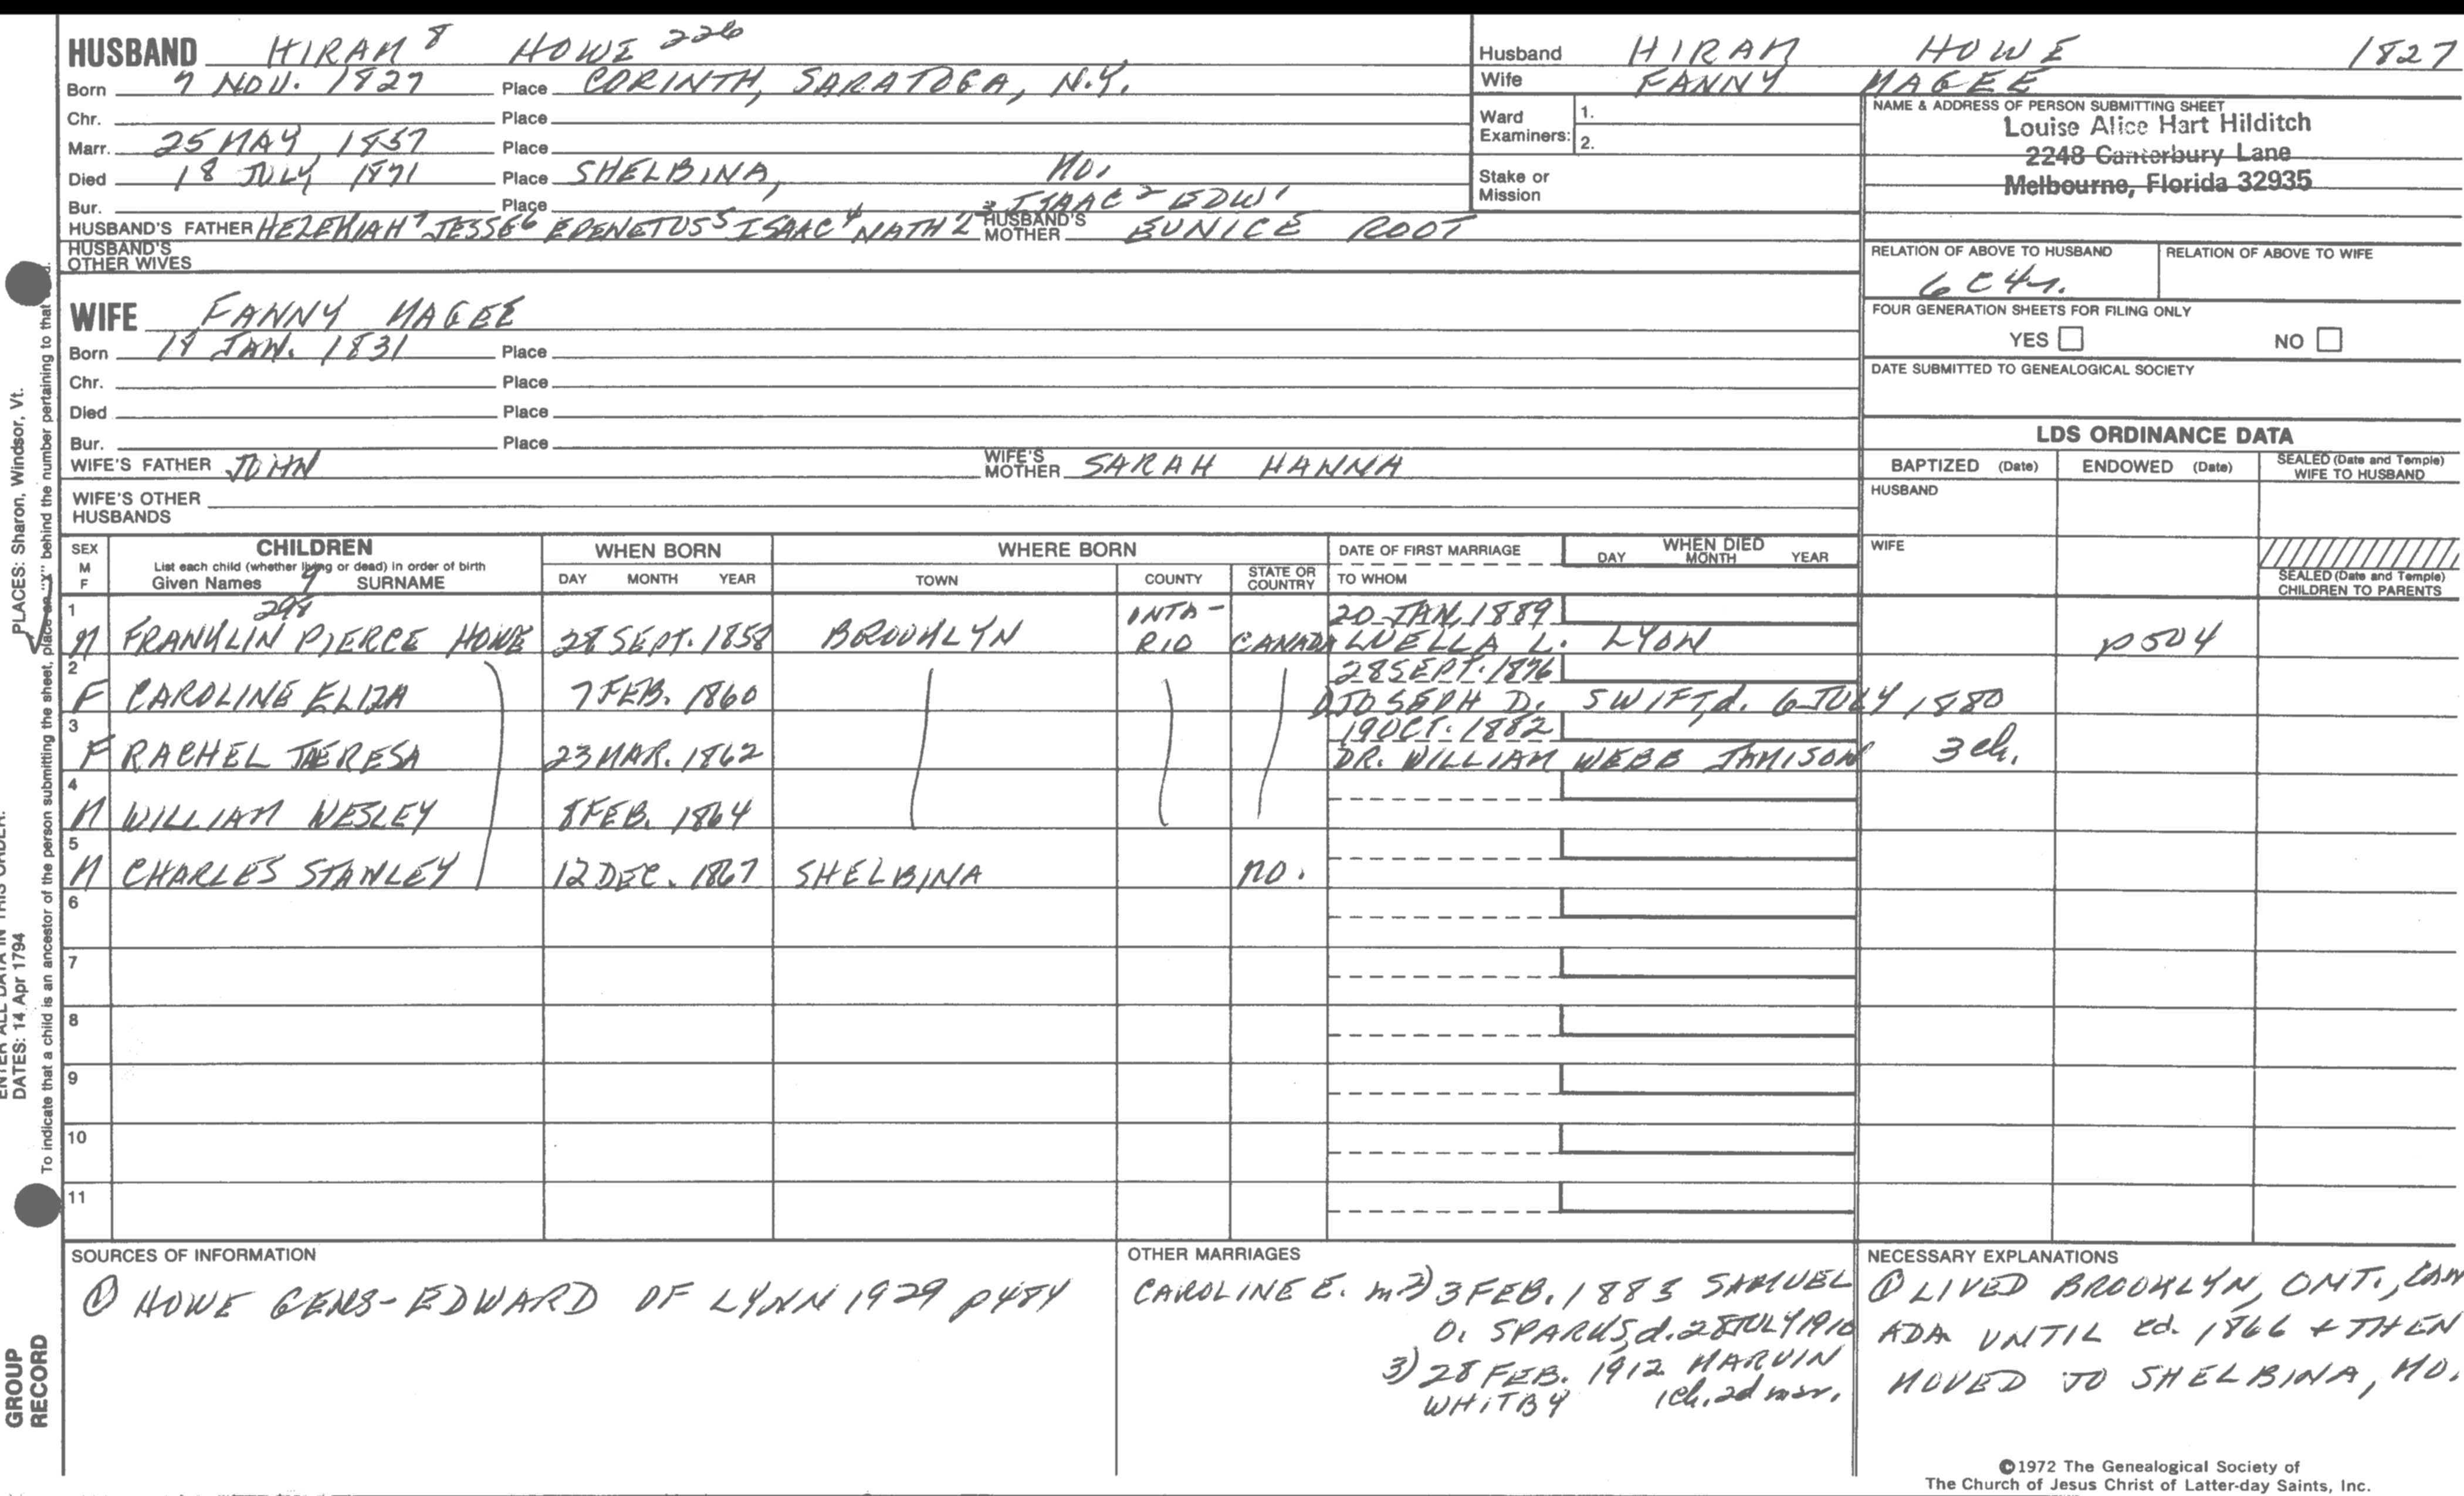 HUSBAND HIRAM 8 HOWE 226
Born 7 NOV. 1827 Place CORINTH, SARATOGA, N.Y.
Chr. Place
Marr. 25 MAY 1857 Place
Died 18 JULY 1871 Place SHELBINA, MO.
Bur. Place 3 ISAAC 2 EDW 1
HUSBAND'S FATHER HEZEKIAH 7 JESSE 6 EPENETUS 5 ISAAC 4 NATH'L HUSBAND'S MOTHER EUNICE ROOT
HUSBAND'S OTHER WIVES
Husband HIRAM HOWE 1827
Wife FANNY MAGEE
Ward Examiners: 1.
2.
Stake or Mission
NAME & ADDRESS OF PERSON SUBMITTING SHEET
Louise Alice Hart Hilditch
2248 Canterbury Lane
Melbourne, Florida 32935
RELATION OF ABOVE TO HUSBAND RELATION OF ABOVE TO WIFE
6C4r.
FOUR GENERATION SHEETS FOR FILING ONLY
YES NO
DATE SUBMITTED TO GENEALOGICAL SOCIETY
WIFE FANNY MAGEE
Born JAN. 1831 Place
Chr. Place
Died Place
Bur. Place
WIFE'S FATHER JOHN WIFE'S MOTHER SARAH HANNA
WIFE'S OTHER HUSBANDS
LDS ORDINANCE DATA
BAPTIZED (Date) ENDOWED (Date) SEALED (Date and Temple) WIFE TO HUSBAND
HUSBAND
WIFE
SEALED (Date and Temple) CHILDREN TO PARENTS
SEX M F
CHILDREN
List each child (whether living or dead) in order of birth
Given Names 9 SURNAME
WHEN BORN
DAY MONTH YEAR
WHERE BORN
TOWN COUNTY STATE OR COUNTRY
DATE OF FIRST MARRIAGE
TO WHOM
WHEN DIED
DAY MONTH YEAR
1 298 ONTA- 20 JAN. 1889
M FRANKLIN PIERCE HOWE 28 SEPT. 1858 BROOKLYN RIO CANADA LUELLA L. LYON p504
2 28 SEPT. 1876
F CAROLINE ELIZA 7 FEB. 1860 JOSEPH D. SWIFT, d. 6 JULY 1880
3 19 OCT. 1882
F RACHEL THERESA 23 MAR. 1862 DR. WILLIAM WEBB JAMISON 3 ch.
4
M WILLIAM WESLEY 8 FEB. 1864
5
M CHARLES STANLEY 12 DEC. 1867 SHELBINA MO.
6
7
8
9
10
11
SOURCES OF INFORMATION
① HOWE GENS-EDWARD OF LYNN 1929 p484
OTHER MARRIAGES
CAROLINE E. m 2) 3 FEB. 1883 SAMUEL
O. SPARKS, d. 28 JULY 1910
3) 28 FEB. 1912 MARVIN
WHITBY 1 ch. 2d mar.
NECESSARY EXPLANATIONS
① LIVED BROOKLYN, ONT., CAN
ADA UNTIL cd. 1866 + THEN
MOVED TO SHELBINA, MO.
©1972 The Genealogical Society of
The Church of Jesus Christ of Latter-day Saints, Inc.
PLACES: Sharon, Windsor, Vt.
ENTER ALL DATA IN THIS ORDER:
DATES: 14 Apr 1794
To indicate that a child is an ancestor of the person submitting the sheet, place an "X" behind the number pertaining to that
GROUP
RECORD